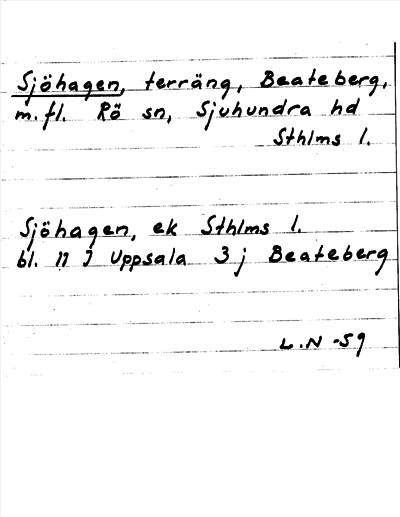 Sjöhagen, terräng, Beateberg,
m.fl. Rö sn, Sjuhundra hd
Sthlms l.
Sjöhagen, ek Sthlms l.
bl. 11 J Uppsala 3 j Beateberg
L.N -59